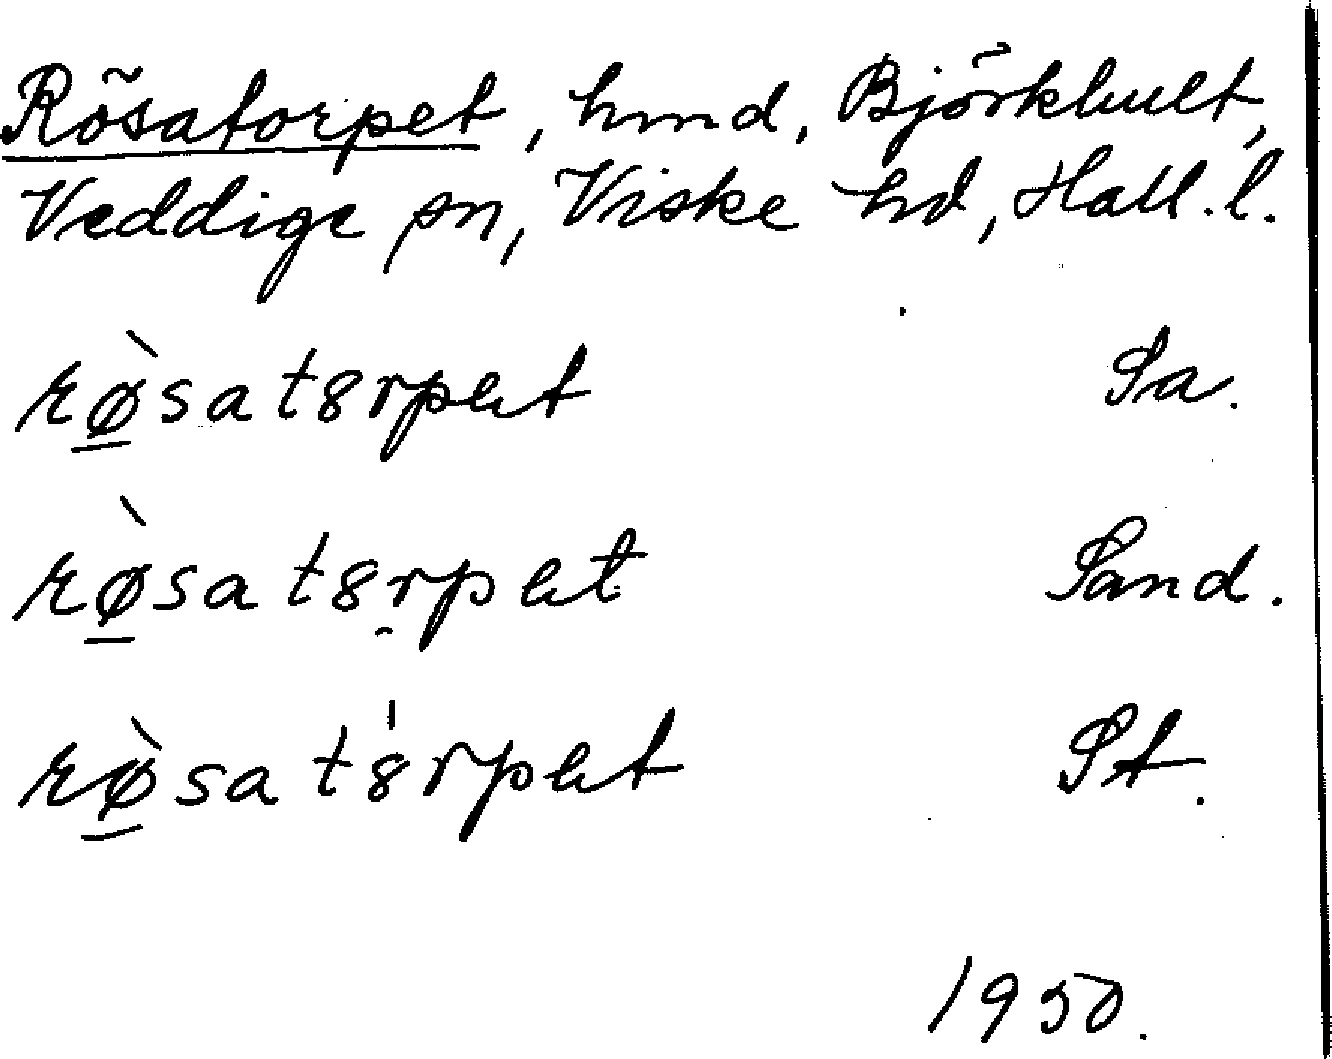 Rösatorpet, hmd, Björkhult,
Veddige sn, Viske hd, Hall. l.
rø̲̀sat8rpət Sa.
rø̲̀sat8r̯pət Sand.
rø̲̀sat8̍rpət St.
1950.